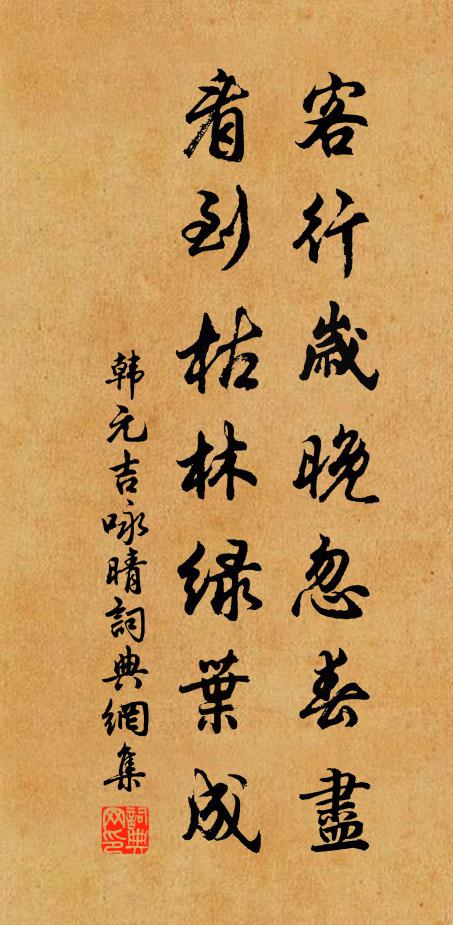 客行歲晚忽春盡
看到枯林綠葉成
韩元吉咏晴詞典網集
詞典网印